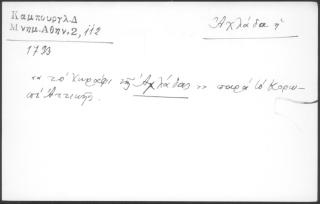 Καμπούργλ.Δ
Μνημ.Αθην.2, 112
Ἀχλάδα ἡ
1733
«« τὸ χωράφι τῆς Ἀχλάδας »» παρὰ τὸ Κορω-
πὶ Ἀττικῆς.